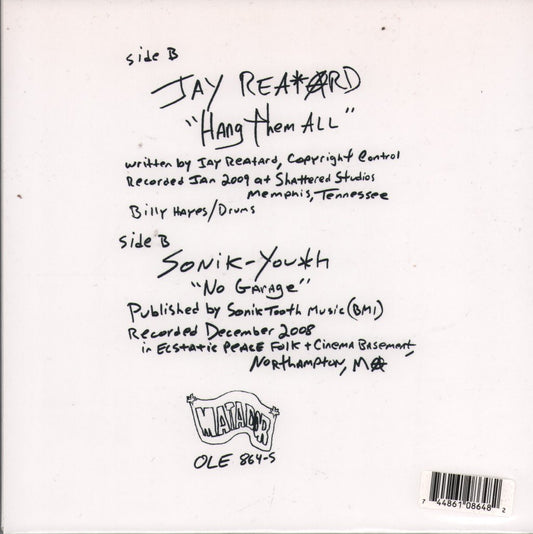 side B
JAY REA*ARD
"Hang them ALL"
written by JAY Reatard, Copyright Control
Recorded Jan 2009 at Shattered Studios
Memphis, Tennessee
Billy Hayes/Drums
side B
SONIK-YOU*h
"No GARAGe"
Published by Sonik Tooth Music (BMI)
Recorded December 2008
in ECSTATIC PEACE FOLK + Cinema Basement,
NORTHAMPTON, MA
MATADOR
OLE 864-S
7 44861 08648 2